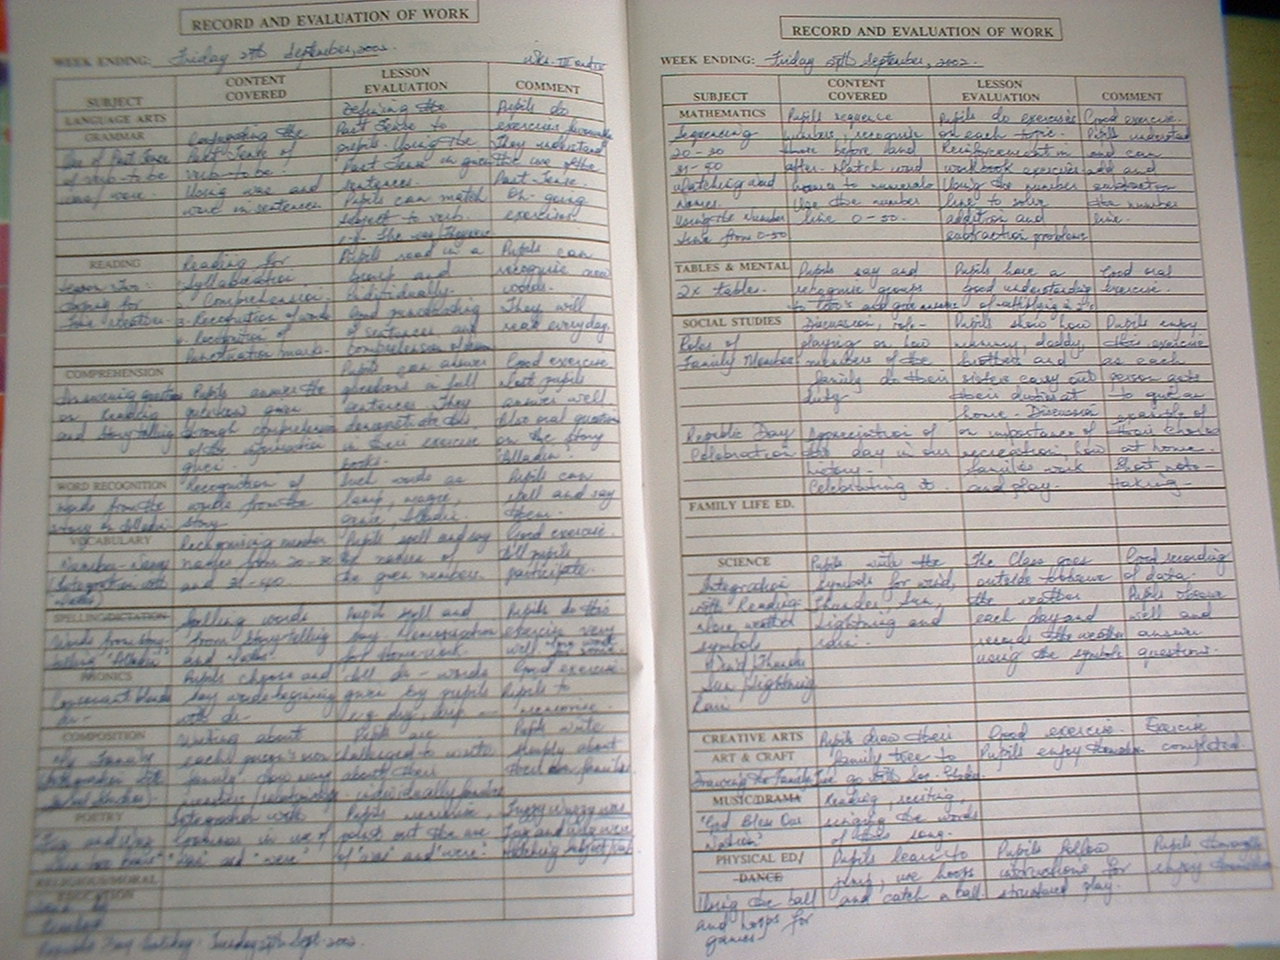 RECORD AND EVALUATION OF WORK
WEEK ENDING: Friday 27th September, 2002. Wks. III and IV
SUBJECT CONTENT COVERED LESSON EVALUATION COMMENT
LANGUAGE ARTS
GRAMMAR
Use of Past Tense
of verb-to be
was/were
Past Tense of
verb-to be.
Using was and
were in sentences
Defining the
Past Tense to
pupils. Using the
Past Tense in
sentences.
Pupils can match
subject to verb.
Pupils do
exercises
They understand
the use of the
Past Tense.
On-going
exercise
READING
Lesson Two
Reading for
Syllabication
Comprehension
Recognition of words
Recognition of
Punctuation marks.
Pupils read in a
group and
individually.
Good punctuating
of sentences and
comprehension
Pupils can
recognise new
words.
They will
read everyday.
COMPREHENSION
Answering questions
on Reading
and Story telling
Pupils answer the
questions given
through comprehension
of the information
given.
Pupils can answer
questions in full
sentences. They
demonstrate this
in their exercise
books.
Good exercise.
Most pupils
answer well
Also oral questions
on the story
"Alladin"
WORD RECOGNITION
Words from the
story
Recognition of
words from the
story.
Such words as
lamp,
Pupils can
spell and say
them.
VOCABULARY
Number Names
(Integration with
Maths)
Recognising number
names from 20-30
and 31-40.
Pupils spell and say
the names of
the given numbers.
Good exercise.
All pupils
participate.
SPELLING/DICTATION
Words from story-
telling "Alladin"
Spelling words
from Storytelling
and
Pupils spell and
say.
for home-work.
Pupils do this
exercise very
well
PHONICS
Consonant blends
dr-
Pupils choose and
say words beginning
with dr-
All dr- words
given by pupils
e.g. drip
Good exercise.
Pupils to
memorise.
COMPOSITION
My Family
Integration with
Social Studies)
Writing about
each person's own
family.
Pupils are
challenged to write
about their
individually
Pupils write
simply about
their own families
POETRY
Integration with
Grammar in use of
"was" and "were"
Pupils memorise,
point out the use
of "was" and "were".
Fuzzy Wuzzy was
Matching subject/verb
RELIGIOUS/MORAL
EDUCATION
Republic Day holiday: Tuesday 24th Sept. 2002.
RECORD AND EVALUATION OF WORK
WEEK ENDING: Friday 27th September, 2002.
SUBJECT CONTENT COVERED LESSON EVALUATION COMMENT
MATHEMATICS
Sequencing
20-30
31-40
Matching word
names.
Using the Number
line from 0-50
Pupils sequence
numbers, recognise
those before and
after. Match word
names to numerals
Use the number
line 0-50.
Pupils do exercises
on each topic.
Reinforcement in
workbook exercises
Using the number
line to solve
addition and
subtraction problems
Good exercise.
Pupils understand
and can
add and
subtraction
the number
line.
TABLES & MENTAL
2x tables.
Pupils say and
recognise groups
Pupils have a
good understanding
Good oral
exercise.
SOCIAL STUDIES
Roles of
Family Members
Discussion, role-
playing on how
members of the
family do their
duty
Pupils show how
mummy, daddy,
brother and
sister carry out
their duties at
home.- Discussion
Pupils enjoy
this exercise
as each
person gets
to give an
example of
their chores
at home.
Republic Day
Celebration
Appreciation of
the day in our
history-
Celebrating it.
on importance of
recreation, how
families work
and play.
Short note-
taking.
FAMILY LIFE ED.
SCIENCE
Integration
with "Reading
weather
symbols
Wind/Thunder
Sun/Lightning
Rain
Pupils write the
symbols for wind,
thunder, sun,
lightning and
rain.
The Class goes
outside to observe
the weather
each day and
records the weather
using the symbols
Good recording
of data.
Pupils observe
well and
answer
questions.
CREATIVE ARTS
ART & CRAFT
Drawing the Family Tree
Pupils draw their
family tree to
go with Soc. Studies
Good exercise.
Pupils enjoy
Exercise
completed.
MUSIC/DRAMA
"God Bless Our
Nation"
Reading, reciting,
singing the words
of this song.
PHYSICAL ED/
DANCE
Using the ball
and hoops for
games.
Pupils learn to
jump, use hoops
and catch a ball.
Pupils follow
instructions for
structured play.
Pupils thoroughly
enjoy